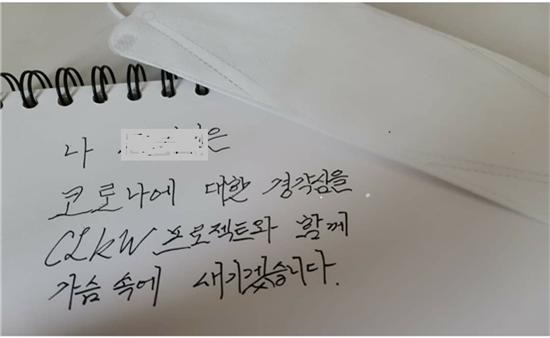 나 은
코로나에 대한 경각심을
CLKW 프로젝트와 함께
가슴 속에 새기겠습니다.